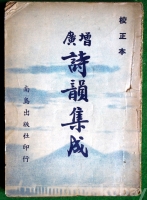 校正本
增廣
詩韻集成
南鳥出版社印行